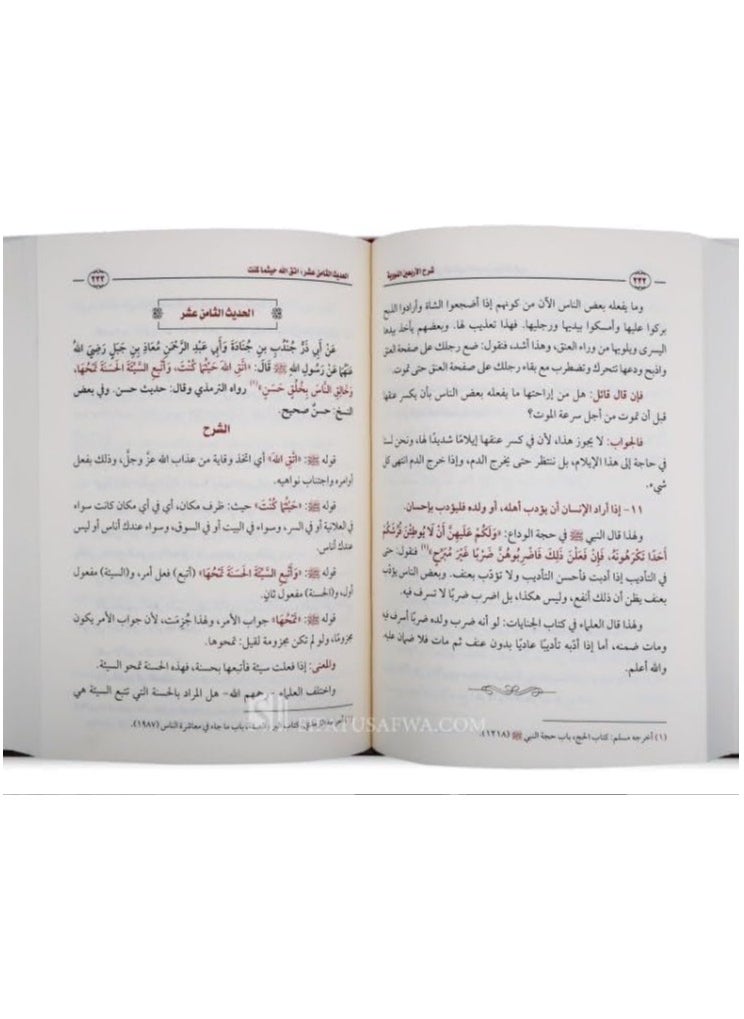 ٢٢٢
شرح الأربعين النووية
وما يفعله بعض الناس الآن من كونهم إذا أضجعوا الشاة وأرادوا الذبح
بركوا عليها وأمسكوا بيديها ورجليها. فهذا تعذيب لها. وبعضهم يأخذ بيدها
اليسرى ويلويها من وراء العنق، وهذا أشد، فنقول: ضع رجلك على صفحة العنق
واذبح ودعها تتحرك وتضطرب مع بقاء رجلك على صفحة العنق حتى تموت.
فإن قال قائل: هل من إراحتها ما يفعله بعض الناس بأن يكسر عنقها
قبل أن تموت من أجل سرعة الموت؟
فالجواب: لا يجوز هذا، لأن في كسر عنقها إيلامًا شديدًا لها، ونحن لسنا
في حاجة إلى هذا الإيلام، بل ننتظر حتى يخرج الدم، وإذا خرج الدم انتهى كل
شيء.
١١- إذا أراد الإنسان أن يؤدب أهله، أو ولده فليؤدب بإحسان.
ولهذا قال النبي ﷺ في حجة الوداع: «وَلَكُمْ عَلَيهِنَّ أَنْ لَا يُوطِئنَ فُرُشَكُمْ
أَحَدًا تَكْرَهُونَهُ، فَإِن فَعَلنَ ذَلِكَ فَاضرِبُوهُنَّ ضَرْبًا غَيرَ مُبَرِّحٍ»(١) فنقول: حتى
في التأديب إذا أدبت فأحسن التأديب ولا تؤدّب بعنف. وبعض الناس يؤدّب
بعنف يظن أن ذلك أنفع، وليس هكذا، بل اضرب ضربًا لا تسرف فيه.
ولهذا قال العلماء في كتاب الجنايات: لو أنه ضرب ولده ضربًا أسرف فيه
ومات ضمنه، أما إذا أدّبه تأديبًا عاديًا بدون عنف ثم مات فلا ضمان عليه
والله أعلم.
(١) أخرجه مسلم: كتاب الحج، باب حجة النبي ﷺ (١٢١٨).
الحديث الثامن عشر: اتق الله حيثما كنت
٢٢٣
الحديث الثامن عشر
عَنْ أَبِي ذَرٍّ جُنْدُبِ بنِ جُنَادَةَ وَأَبِي عَبْدِ الرَّحْمَنِ مُعَاذِ بنِ جَبَلٍ رَضِيَ اللهُ
عَنْهُمَا عَنْ رَسُولِ اللهِ ﷺ قَالَ: «اتَّقِ اللهَ حَيْثُمَا كُنْتَ، وَأَتْبِعِ السَّيِّئَةَ الْحَسَنَةَ تَمْحُهَا،
وَخَالِقِ النَّاسَ بِخُلُقٍ حَسَنٍ»(١) رواه الترمذي وقال: حديث حسن. وفي بعض
النسخ: حسنٌ صحيح.
الشرح
قوله ﷺ: «اتَّقِ اللهَ» أي اتخذ وقاية من عذاب الله عزَّ وجلَّ، وذلك بفعل
أوامره واجتناب نواهيه.
قوله ﷺ: «حَيْثُمَا كُنْتَ» حيث: ظرف مكان، أي في أي مكان كانت سواء
في العلانية أو في السر، وسواء في البيت أو في السوق، وسواء عندك أناس أو ليس
عندك أناس.
قوله ﷺ: «وَأَتْبِعِ السَّيِّئَةَ الحَسَنَةَ تَمْحُهَا» (أتبع) فعل أمر، و(السيئة) مفعول
أول، و(الحسنة) مفعول ثانٍ.
قوله ﷺ: «تَمْحُهَا» جواب الأمر، ولهذا جُزِمَت، لأن جواب الأمر يكون
مجزومًا، ولو لم تكن مجزومة لقيل: تمحوها.
والمعنى: إذا فعلت سيئة فأتبعها بحسنة، فهذه الحسنة تمحو السيئة.
واختلف العلماء -رحمهم الله- هل المراد بالحسنة التي تتبع السيئة هي
باب ما جاء في معاشرة الناس (١٩٨٧)
SAFWA.COM